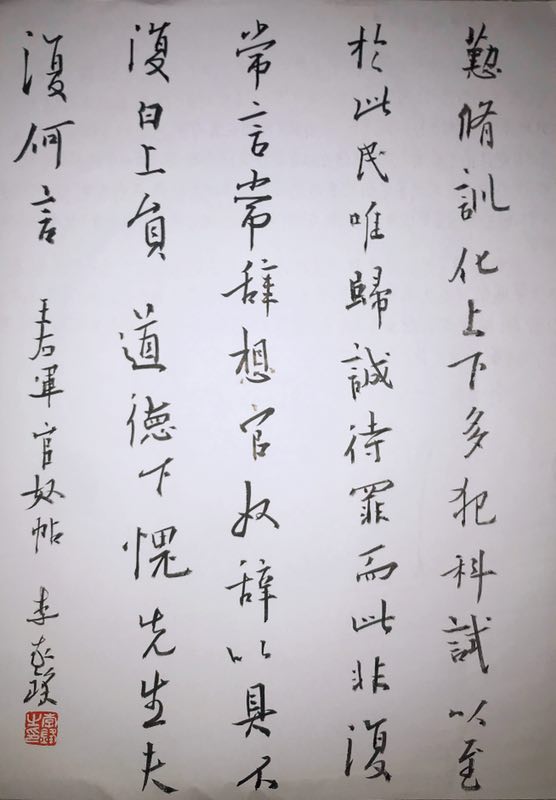 懃脩訓化上下多犯科試以至
於此民唯歸誠待罪而此非復
常言常辞想官奴辞以具不
復白上負道德下愧先生夫
復何言
王右軍官奴帖 李